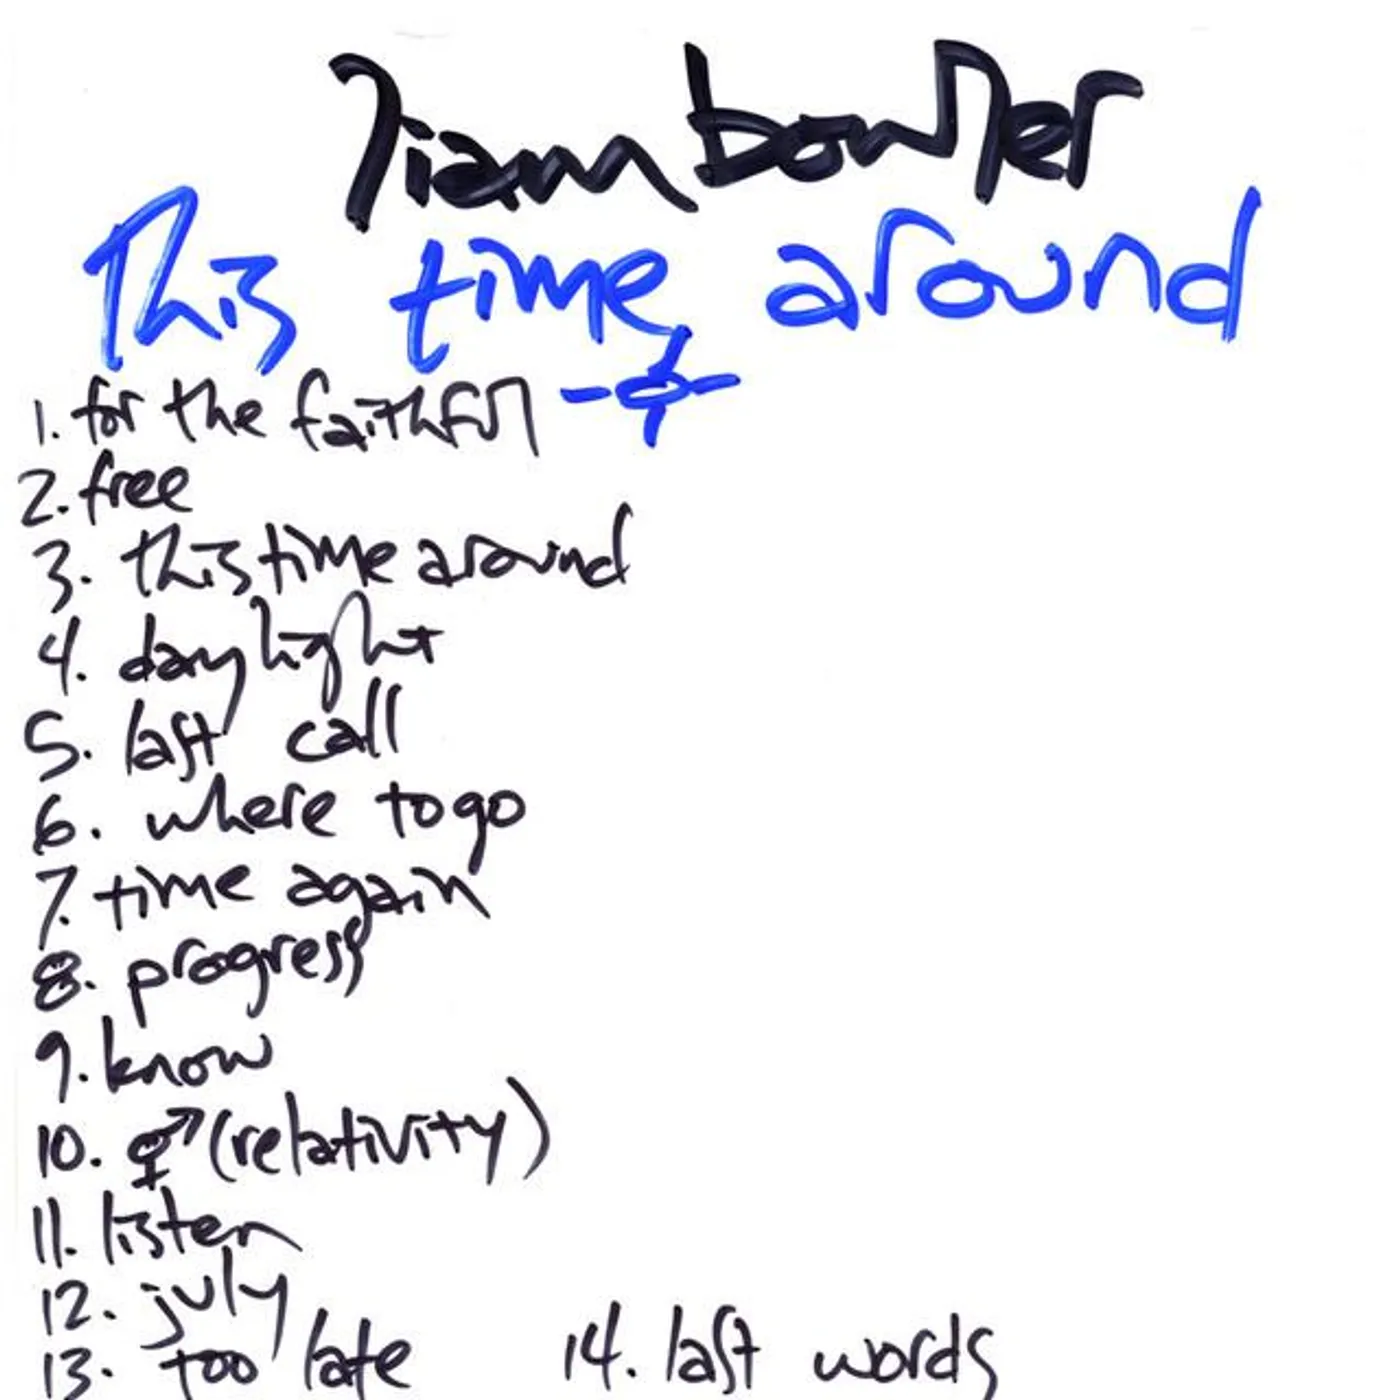 liam bowler
This time around
1. for the faithful
2. free
3. this time around
4. daylight
5. last call
6. where to go
7. time again
8. progress
9. know
10. ⚥ (relativity)
11. listen
12. july
13. too late 14. last words